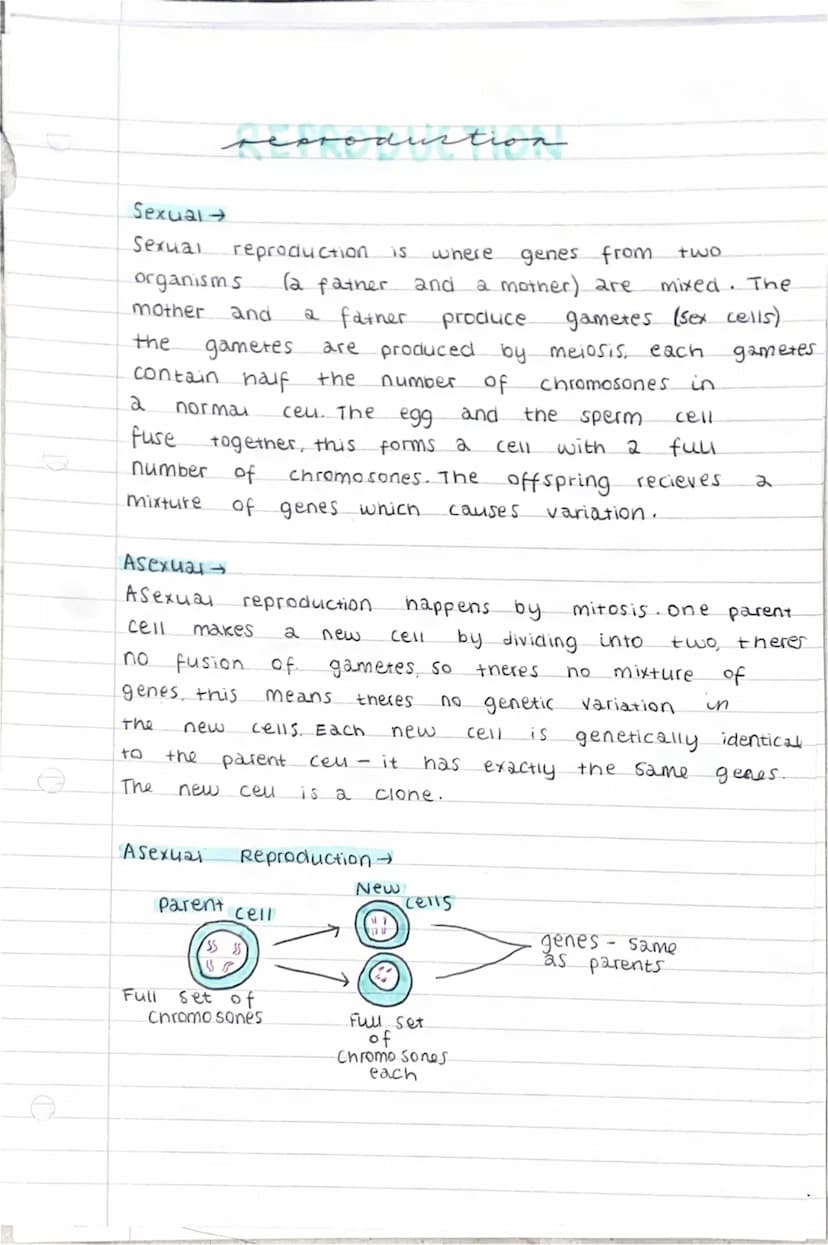 REPRODUCTION
reproduction
Sexual →
Sexual reproduction is where genes from two
organisms (a father and a mother) are mixed. The
mother and a father produce gametes (sex cells)
the gametes are produced by meiosis, each gametes
contain half the number of chromosones in
a normal cell. The egg and the sperm cell
fuse together, this forms a cell with a full
number of chromosones. The offspring recieves a
mixture of genes which causes variation.
Asexual →
Asexual reproduction happens by mitosis. one parent
cell makes a new cell by dividing into two, theres
no fusion of gametes, so theres no mixture of
genes, this means theres no genetic variation in
the new cells. Each new cell is genetically identical
to the parent cell - it has exactly the same genes.
The new cell is a clone.
Asexual Reproduction →
New
parent cell cells
genes - same
as parents
Full set of
Chromosones
Full set
of
Chromosones
each